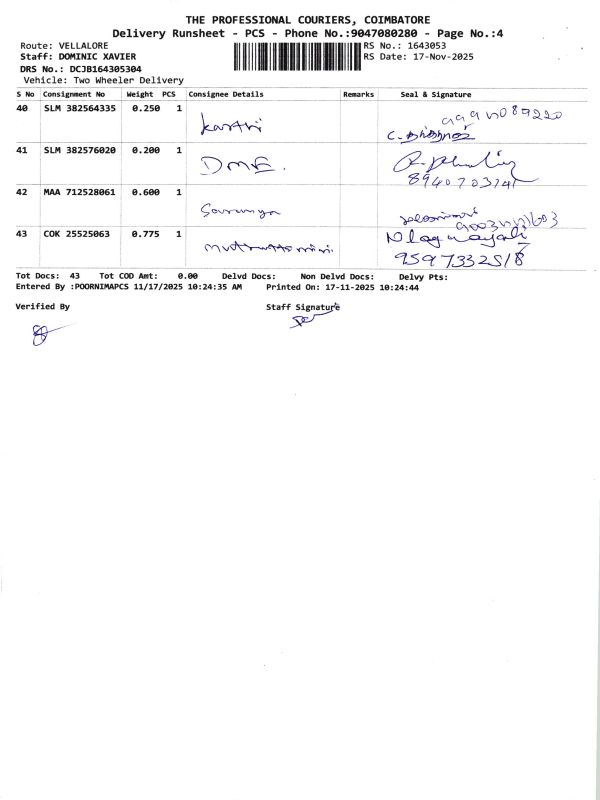 THE PROFESSIONAL COURIERS, COIMBATORE
Delivery Runsheet - PCS - Phone No.:9047080280 - Page No.:4
Route: VELLALORE
RS No.: 1643053
Staff: DOMINIC XAVIER
RS Date: 17-Nov-2025
DRS No.: DCJB164305304
Vehicle: Two Wheeler Delivery
S No Consignment No Weight PCS Consignee Details Remarks Seal & Signature
40 SLM 382564335 0.250 1
41 SLM 382576020 0.200 1 DME.
42 MAA 712528061 0.600 1 Saranya
43 COK 25525063 0.775 1
Tot Docs: 43 Tot COD Amt: 0.00 Delvd Docs: Non Delvd Docs: Delvy Pts:
Entered By :POORNIMAPCS 11/17/2025 10:24:35 AM Printed On: 17-11-2025 10:24:44
Verified By Staff Signature